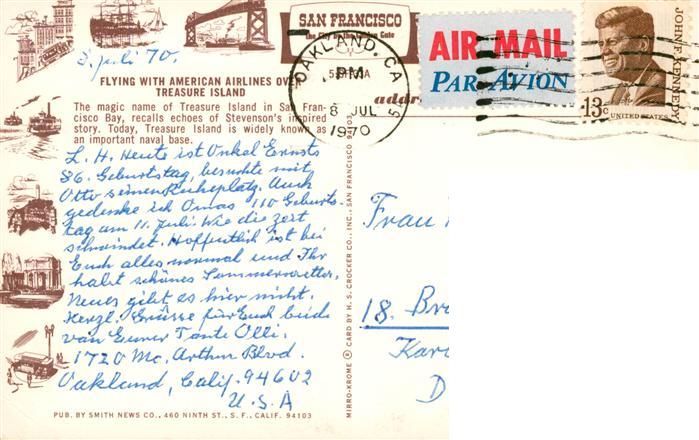 SAN FRANCISCO
The City by the Golden Gate
AIR MAIL
PAR AVION
JOHN F. KENNEDY
13c
UNITED STATES
OAKLAND, CA
PM
8 JUL
1970
5. Juli 70.
FLYING WITH AMERICAN AIRLINES OVER
TREASURE ISLAND
The magic name of Treasure Island in San Fran-
cisco Bay, recalls echoes of Stevenson's inspired
story. Today, Treasure Island is widely known as
an important naval base.
L. H. Heute ist Onkel Ernsts
86. Geburtstag, besuchte mit
Otto seinen Ruheplatz. Auch
gedenke ich Omas 110 Geburts-
tag am 11. Juli. Wie die Zeit
schwindet. Hoffentlich ist bei
Euch alles normal und Ihr
habt schönes Sommerwetter.
Neues gibt es hier nicht.
Herzl. Grüsse für Euch beide
von Eurer Tante Olli.
1720 Mc. Arthur Blvd.
Oakland, Calif. 94602
U.S.A
PUB. BY SMITH NEWS CO., 460 NINTH ST., S. F., CALIF. 94103
MIRRO-KROME ® CARD BY H. S. CROCKER CO., INC., SAN FRANCISCO
Frau
18. Br
Kar
D